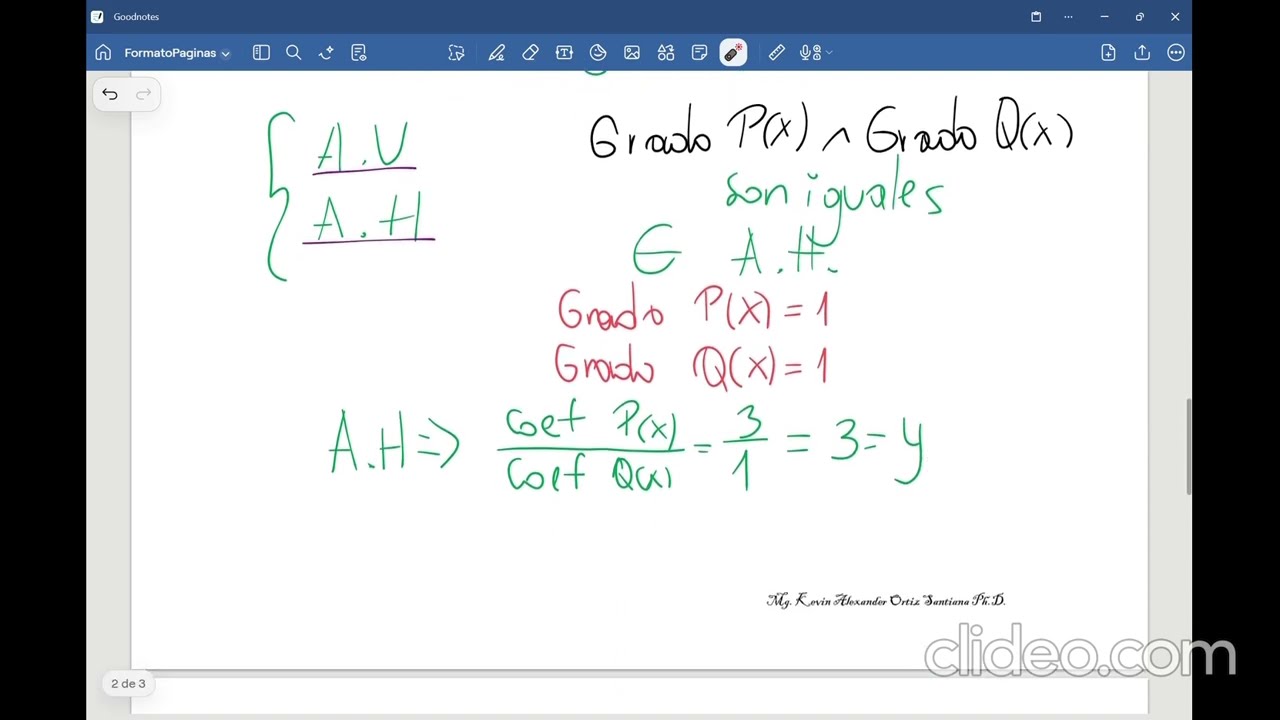 Goodnotes
FormatoPaginas
A.V
A.H
Grado P(x) ^ Grado Q(x)
son iguales
∈ A.H.
Grado P(x) = 1
Grado Q(x) = 1
A.H => coef P(x) / coef Q(x) = 3/1 = 3 = y
Mg. Kevin Alexander Ortiz Santiana Ph.D.
clideo.com
2 de 3